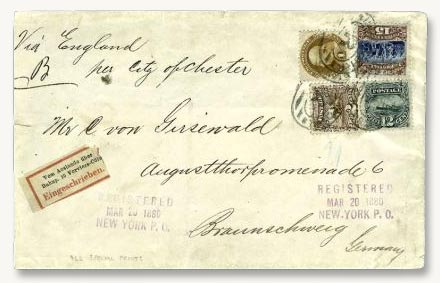 Via England
B per City of Chester
Mr C. von Girsewald
Augustthorpromenade 6
Braunschweig
Germany
Vom Auslande über
Bahnp. 10 Verviers-Cöln
Eingeschrieben.
REGISTERED
MAR 20 1880
NEW-YORK P. O.
REGISTERED
MAR 20 1880
NEW-YORK P. O.
15
POSTAGE
12